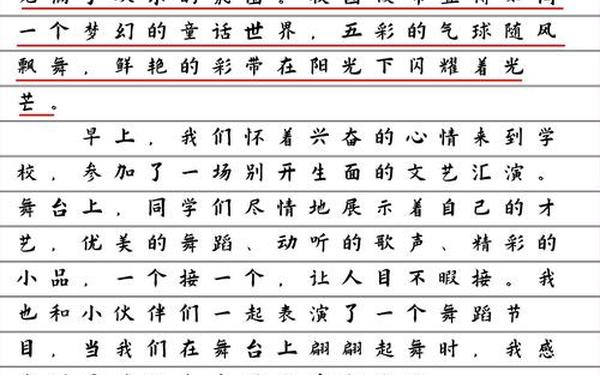 一个梦幻的童话世界，五彩的气球随风
飘舞，鲜艳的彩带在阳光下闪耀着光
芒。
早上，我们怀着兴奋的心情来到学
校，参加了一场别开生面的文艺汇演。
舞台上，同学们尽情地展示着自己的才
艺，优美的舞蹈、动听的歌声、精彩的
小品，一个接一个，让人目不暇接。我
也和小伙伴们一起表演了一个舞蹈节
目，当我们在舞台上翩翩起舞时，我感